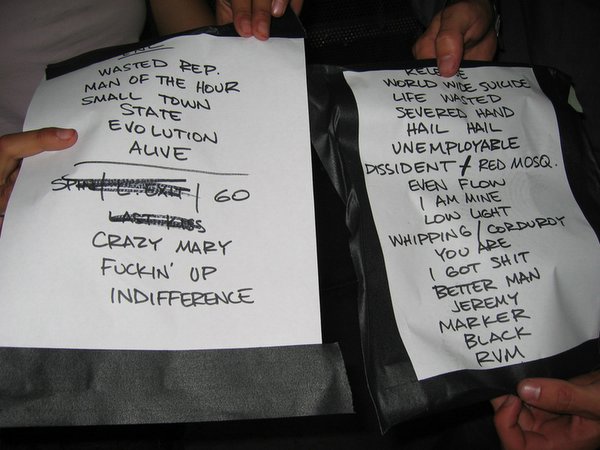 WASTED REP.
MAN OF THE HOUR
SMALL TOWN
STATE
EVOLUTION
ALIVE
SPIN / L. EXIT / GO
LAST KISS
CRAZY MARY
FUCKIN' UP
INDIFFERENCE
RELEASE
WORLD WIDE SUICIDE
LIFE WASTED
SEVERED HAND
HAIL HAIL
UNEMPLOYABLE
DISSIDENT / RED MOSQ.
EVEN FLOW
I AM MINE
LOW LIGHT
WHIPPING / CORDUROY
YOU ARE
I GOT SHIT
BETTER MAN
JEREMY
MARKER
BLACK
RVM